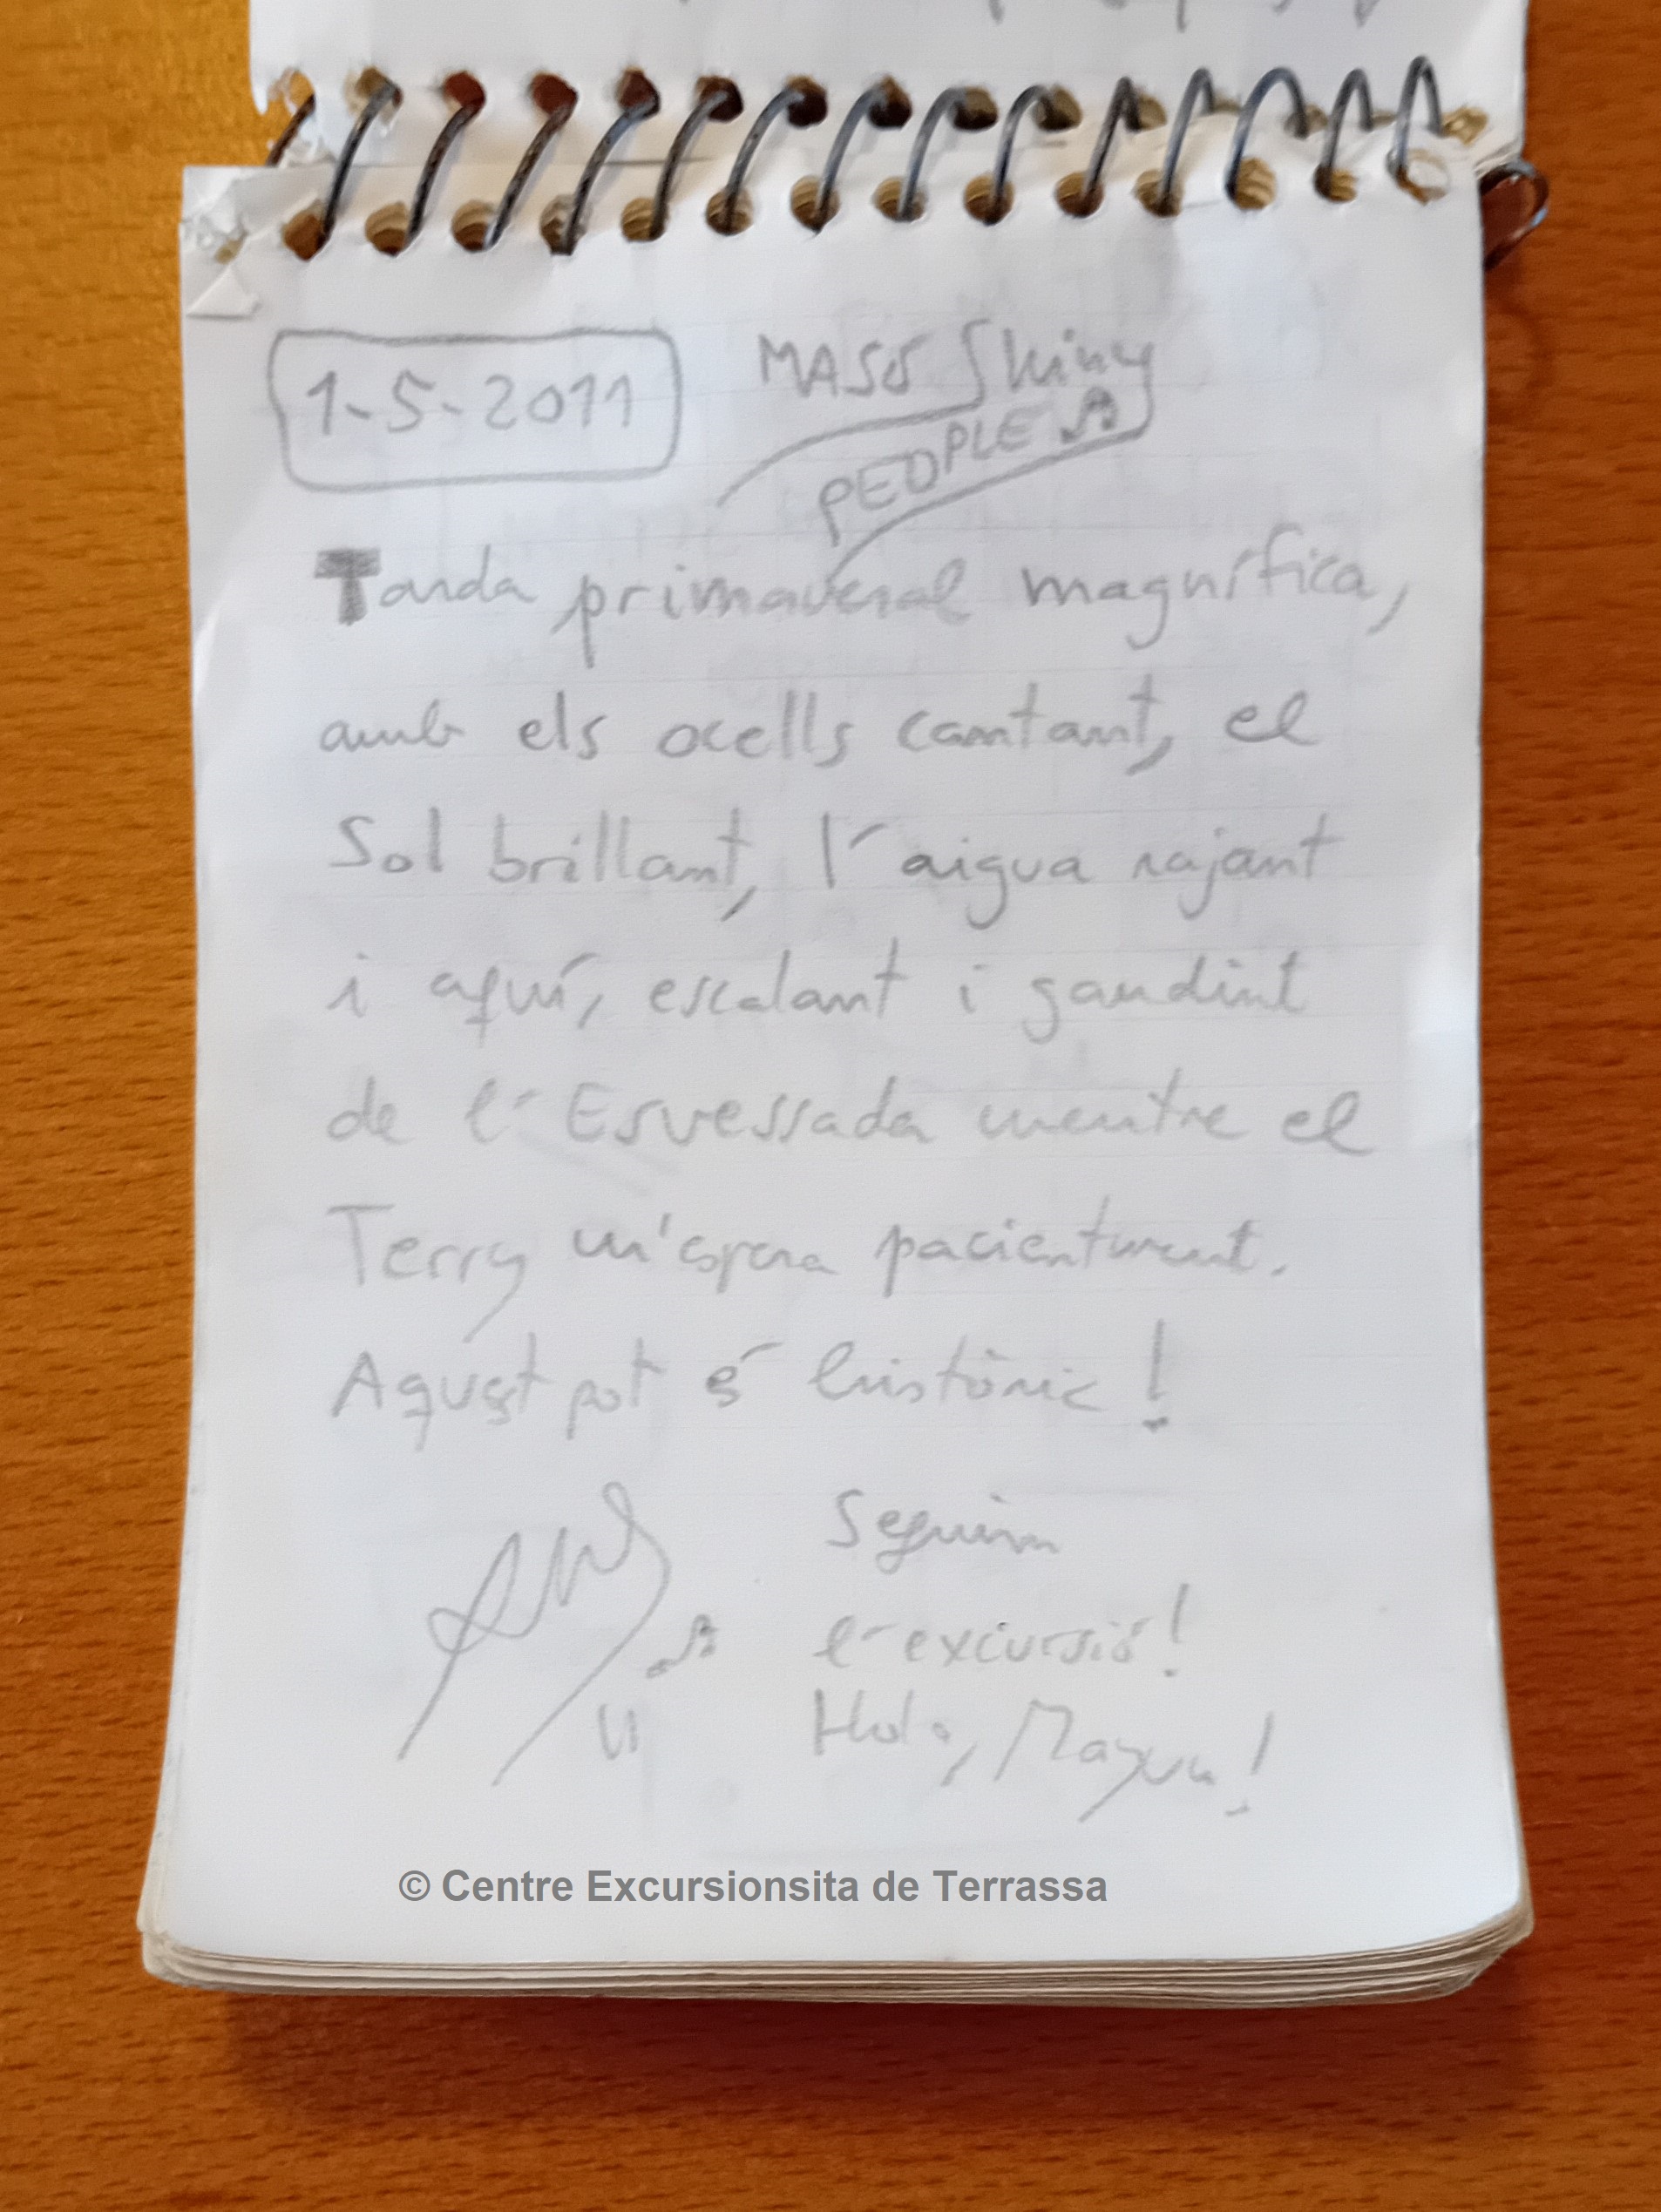 1-5-2011
MASS Shiny
PEOPLE
Tarda primaveral magnífica,
amb els ocells cantant, el
Sol brillant, l'aigua rajant
i aquí, escalant i gaudint
de l'Esvessada mentre el
Terry m'espera pacientment.
Aquest pot és històric!
Seguim
l'excursió!
Hola,
© Centre Excursionsita de Terrassa